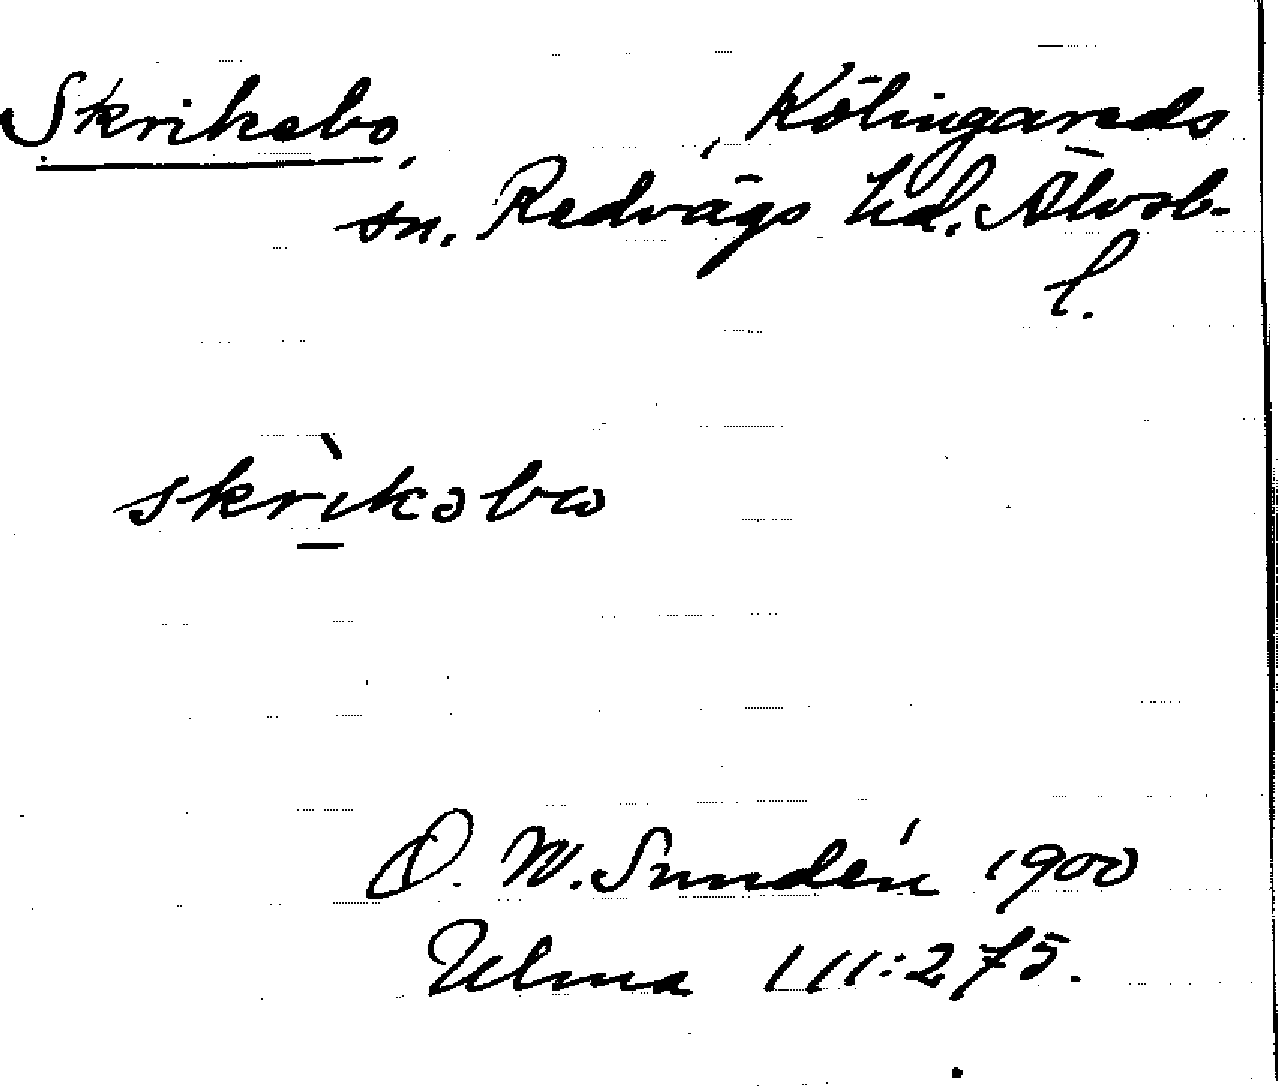 Skrikebo, Kölingareds
sn. Redvägs hd. Älvsb.
l.
skrìkəbω
D. W. Sundén 1900
Ulma 111:275.